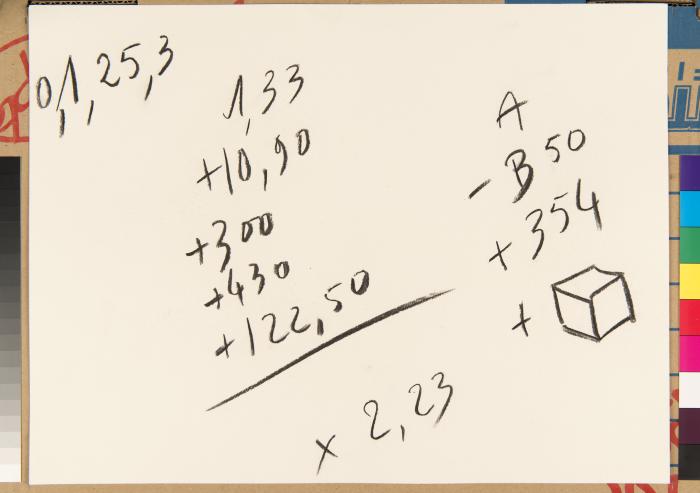 0,1,25,3
1,33
+10,90
+300
+430
+122,50
x 2,23
A
- B 50
+ 354
+